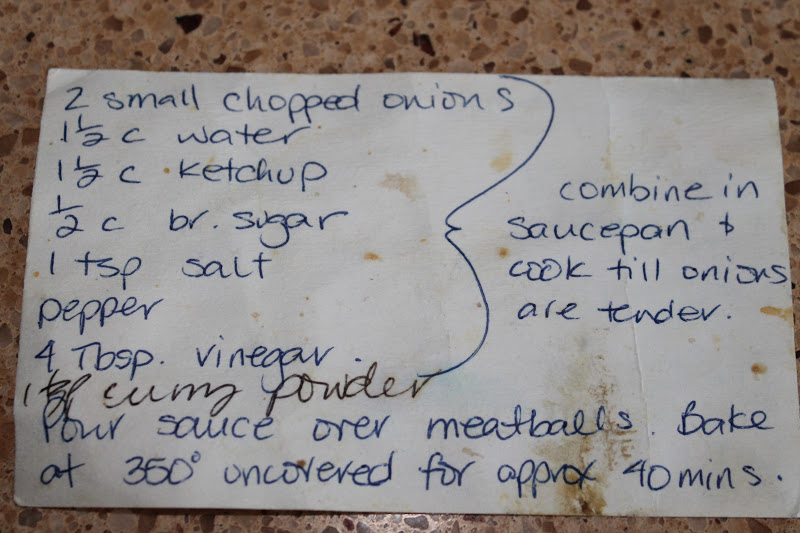 2 small chopped onions
1 1/2 c water
1 1/2 c ketchup
1/2 c br. sugar
1 tsp salt
pepper
4 Tbsp. vinegar.
1 tsp curry powder
combine in
saucepan &
cook till onions
are tender.
Pour sauce over meatballs. Bake
at 350° uncovered for approx 40 mins.